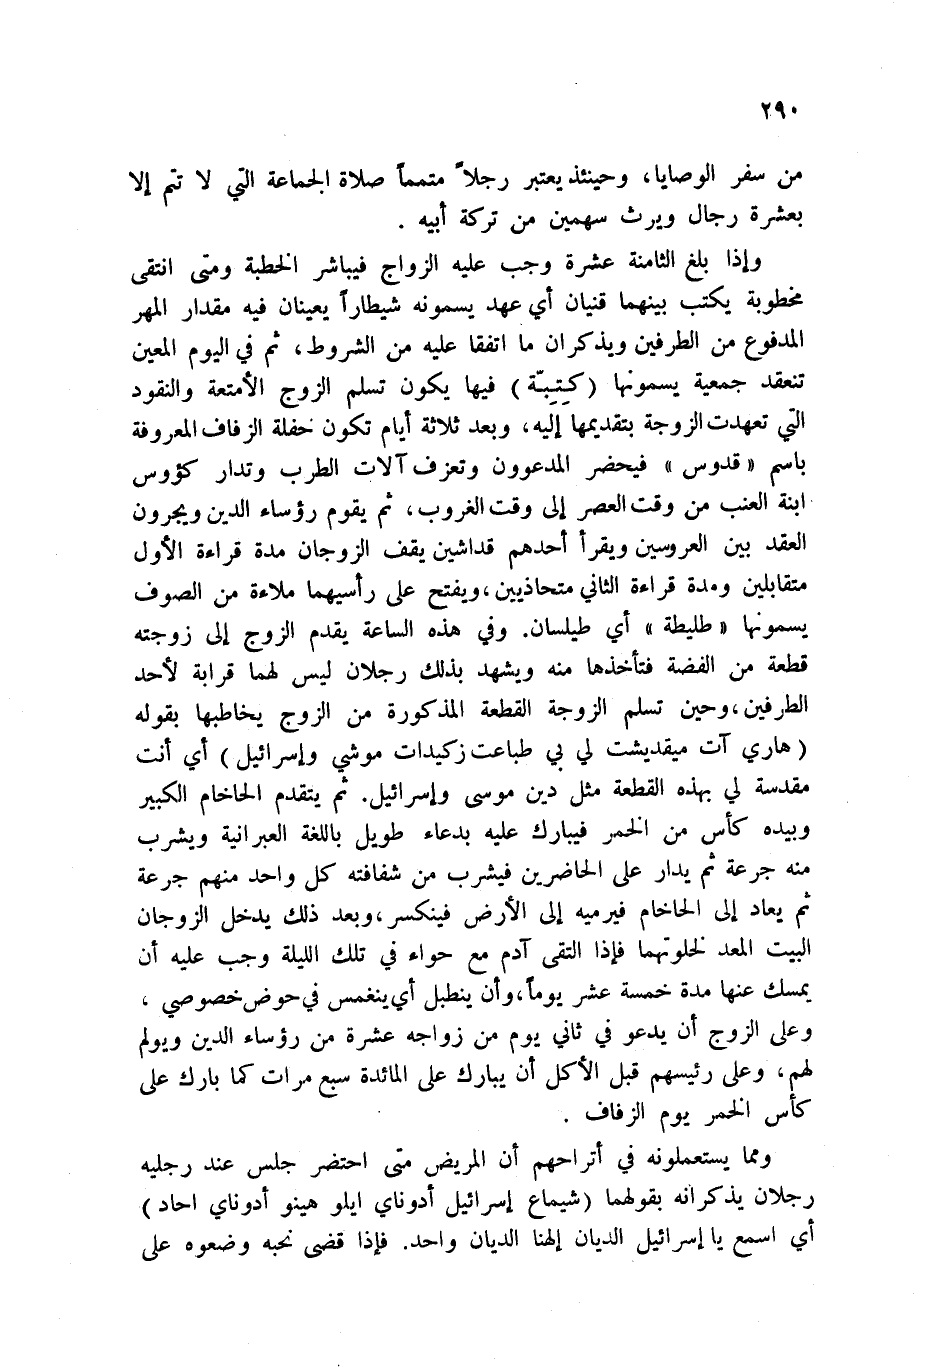 ٢٩٠
من سفر الوصايا، وحينئذ يعتبر رجلاً متمماً صلاة الجماعة التي لا تتم إلا
بعشرة رجال ويرث سهمين من تركة أبيه .
وإذا بلغ الثامنة عشرة وجب عليه الزواج فيباشر الخطبة ومتى انتقى
مخطوبة يكتب بينهما قنيان أي عهد يسمونه شيطاراً يعينان فيه مقدار المهر
المدفوع من الطرفين ويذكران ما اتفقا عليه من الشروط، ثم في اليوم المعين
تنعقد جمعية يسمونها (كِتِبّة) فيها يكون تسلم الزوج الأمتعة والنقود
التي تعهدت الزوجة بتقديمها إليه، وبعد ثلاثة أيام تكون حفلة الزفاف المعروفة
باسم « قدوس » فيحضر المدعوون وتعزف آلات الطرب وتدار كؤوس
ابنة العنب من وقت العصر إلى وقت الغروب، ثم يقوم رؤساء الدين ويجرون
العقد بين العروسين ويقرأ أحدهم قداشين يقف الزوجان مدة قراءة الأول
متقابلين ومدة قراءة الثاني متحاذيين، ويفتح على رأسيهما ملاءة من الصوف
يسمونها « طليطة » أي طيلسان. وفي هذه الساعة يقدم الزوج إلى زوجته
قطعة من الفضة فتأخذها منه ويشهد بذلك رجلان ليس لهما قرابة لأحد
الطرفين، وحين تسلم الزوجة القطعة المذكورة من الزوج يخاطبها بقوله
( هاري آت ميقديشت لي بي طباعت زكيدات موشي وإسرائيل ) أي أنت
مقدسة لي بهذه القطعة مثل دين موسى وإسرائيل. ثم يتقدم الحاخام الكبير
وبيده كأس من الخمر فيبارك عليه بدعاء طويل باللغة العبرانية ويشرب
منه جرعة ثم يدار على الحاضرين فيشرب من شفافته كل واحد منهم جرعة
ثم يعاد إلى الحاخام فيرميه إلى الأرض فينكسر، وبعد ذلك يدخل الزوجان
البيت المعد لخلوتهما فإذا التقى آدم مع حواء في تلك الليلة وجب عليه أن
يمسك عنها مدة خمسة عشر يوماً، وأن ينطبل أي ينغمس في حوض خصوصي ،
وعلى الزوج أن يدعو في ثاني يوم من زواجه عشرة من رؤساء الدين ويولم
لهم، وعلى رئيسهم قبل الأكل أن يبارك على المائدة سبع مرات كما بارك على
كأس الخمر يوم الزفاف .
ومما يستعملونه في أتراحهم أن المريض متى احتضر جلس عند رجليه
رجلان يذكرانه بقولهما (شيماع إسرائيل أدوناي ايلو هينو أدوناي احاد )
أي اسمع يا إسرائيل الديان إلهنا الديان واحد. فإذا قضى نحبه وضعوه على